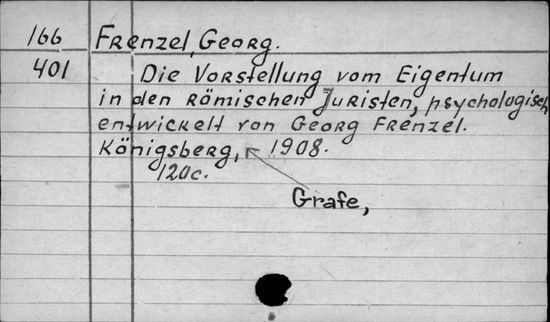 166 Frenzel, Georg.
401 Die Vorstellung vom Eigentum
in den Römischen Juristen, psychologisch
entwickelt von Georg Frenzel.
Königsberg, 1908.
120c.
Grafe,